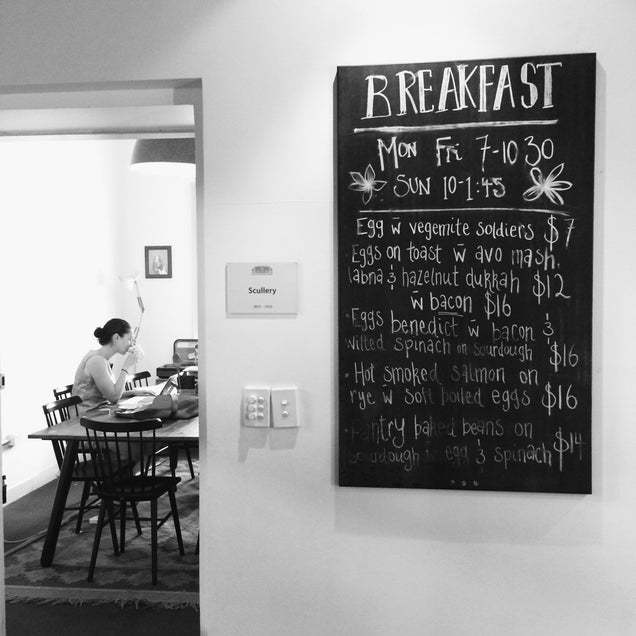 BREAKFAST
MON FRI 7-10 30
SUN 10-1:45
Egg w̄ vegemite soldiers $7
Eggs on toast w̄ avo mash,
labna & hazelnut dukkah $12
w̄ bacon $16
· Eggs benedict w̄ bacon &
wilted spinach on sourdough $16
· Hot smoked salmon on
rye w soft boiled eggs $16
· Pantry baked beans on
sourdough w egg & spinach $14
Scullery